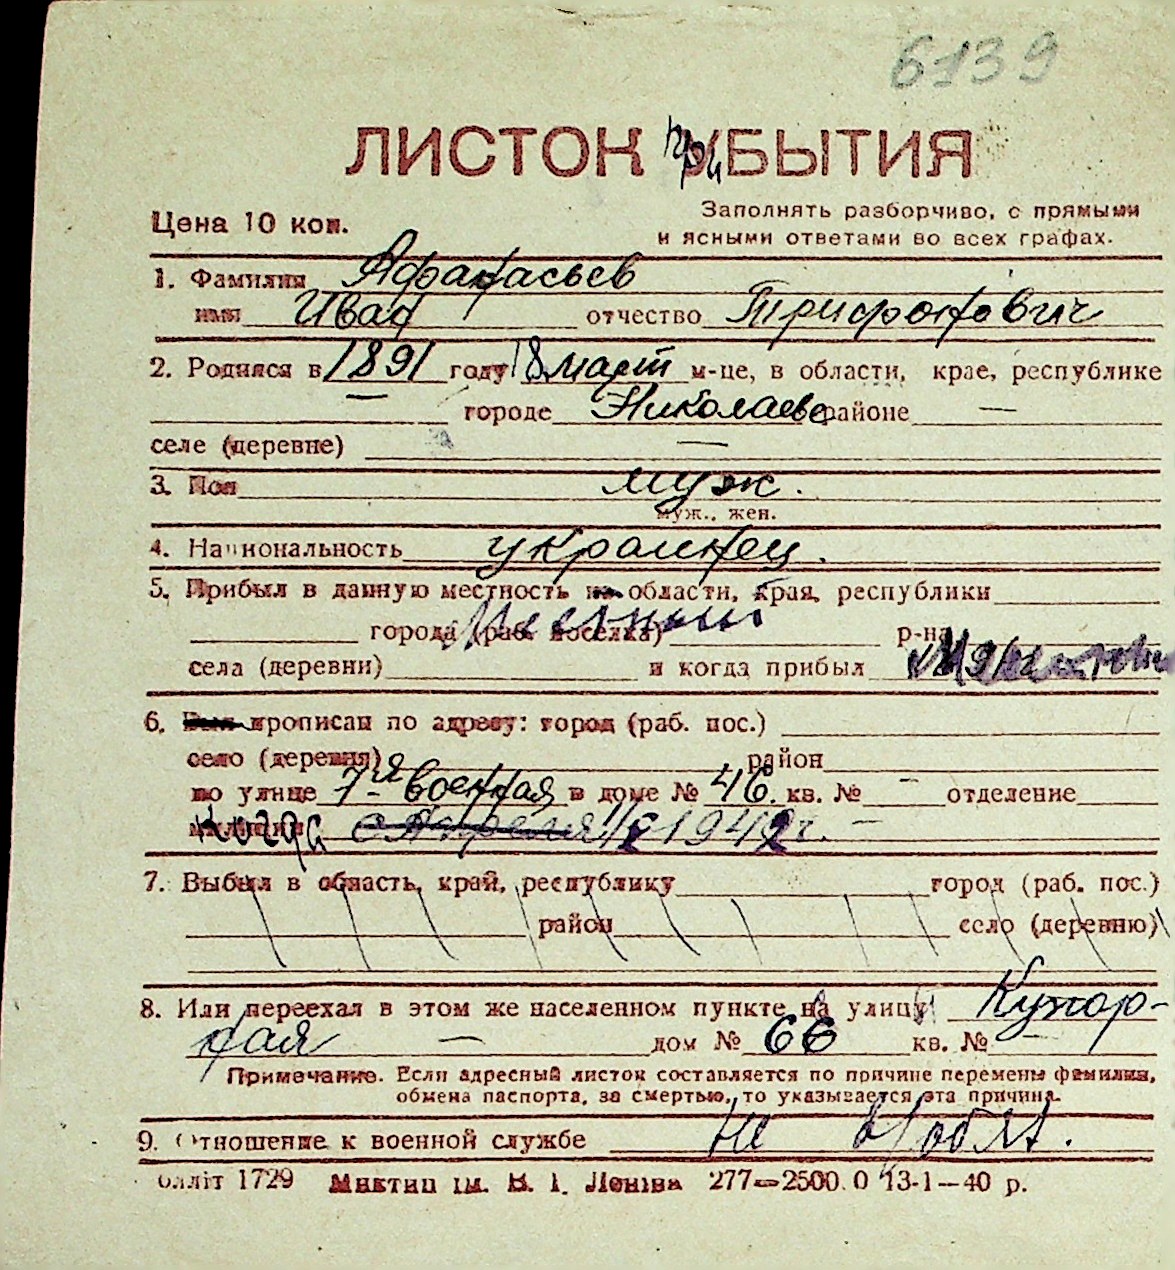 6139
ЛИСТОК прибЫТИЯ
Цена 10 коп.
Заполнять разборчиво, с прямыми
и ясными ответами во всех графах.
1. Фамилия Афанасьев
имя Иван отчество Трифонович
2. Родился в 1891 году 18 март м-це, в области, крае, республике
— городе Николаеве районе —
селе (деревне) —
3. Пол муж.
муж., жен.
4. Национальность украинец.
5. Прибыл в данную местность из области, края, республики
города (раб. поселка) Местный р-на
села (деревни) и когда прибыл
6. Был прописан по адресу: город (раб. пос.)
село (деревня) район
по улице 7-я Военная в доме № 46. кв. № — отделение
милиции Когда с Апреля 1942 г. —
7. Выбыл в область, край, республику город (раб. пос.)
район село (деревню)
8. Или переехал в этом же населенном пункте на улицу Кузнор-
ная — дом № 66 кв. № —
Примечание. Если адресный листок составляется по причине перемены фамилии,
обмена паспорта, за смертью, то указывается эта причина.
9. Отношение к военной службе не
олліт 1729 Миктип ім. В. І. Леніна 277—2500. 0 13-1—40 р.